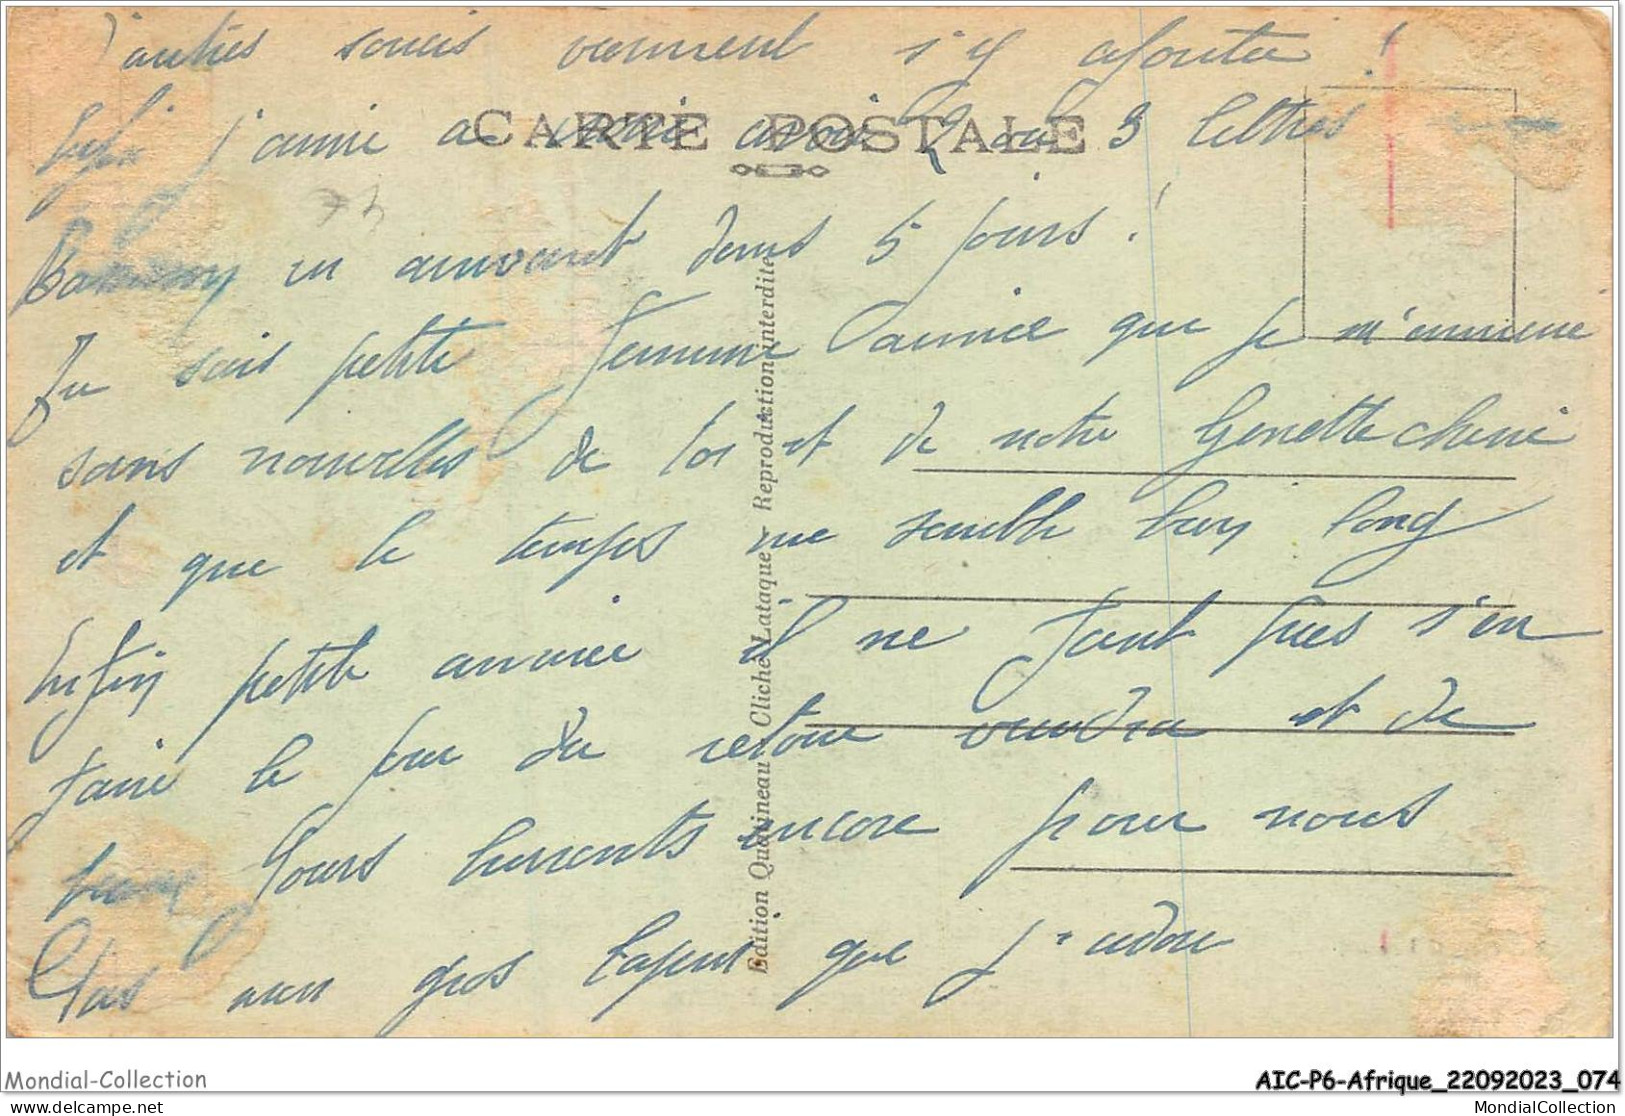 d'autres soucis viennent s'y ajouter !
j'aurai avoir 2 ou 3 lettres
CARTE POSTALE
en arrivant dans 5 jours !
Tu sais petite femme que je m'ennuie
sans nouvelles de toi et de notre Ginette chérie
et que le temps me semble bien long
Enfin petite amie il ne faut pas s'en
faire le jour du retour viendra et de
beaux jours luiront encore pour nous
Fais un gros que j'adore
Edition Quatineau Cliché Lataque - Reproduction interdite
Mondial-Collection
AIC-P6-Afrique_22092023_074
delcampe.net
MondialCollection